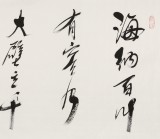 海纳百川
有容乃
大壁立千